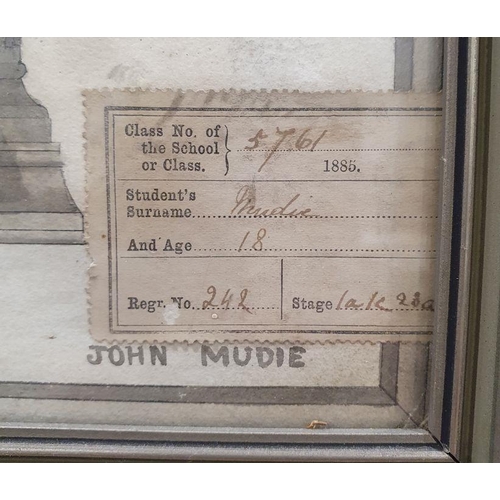 Class No. of
the School } 5761
or Class. 1885.
Student's
Surname Mudie
And Age 18
Regr. No. 242 Stage 1a&c 23a
JOHN MUDIE